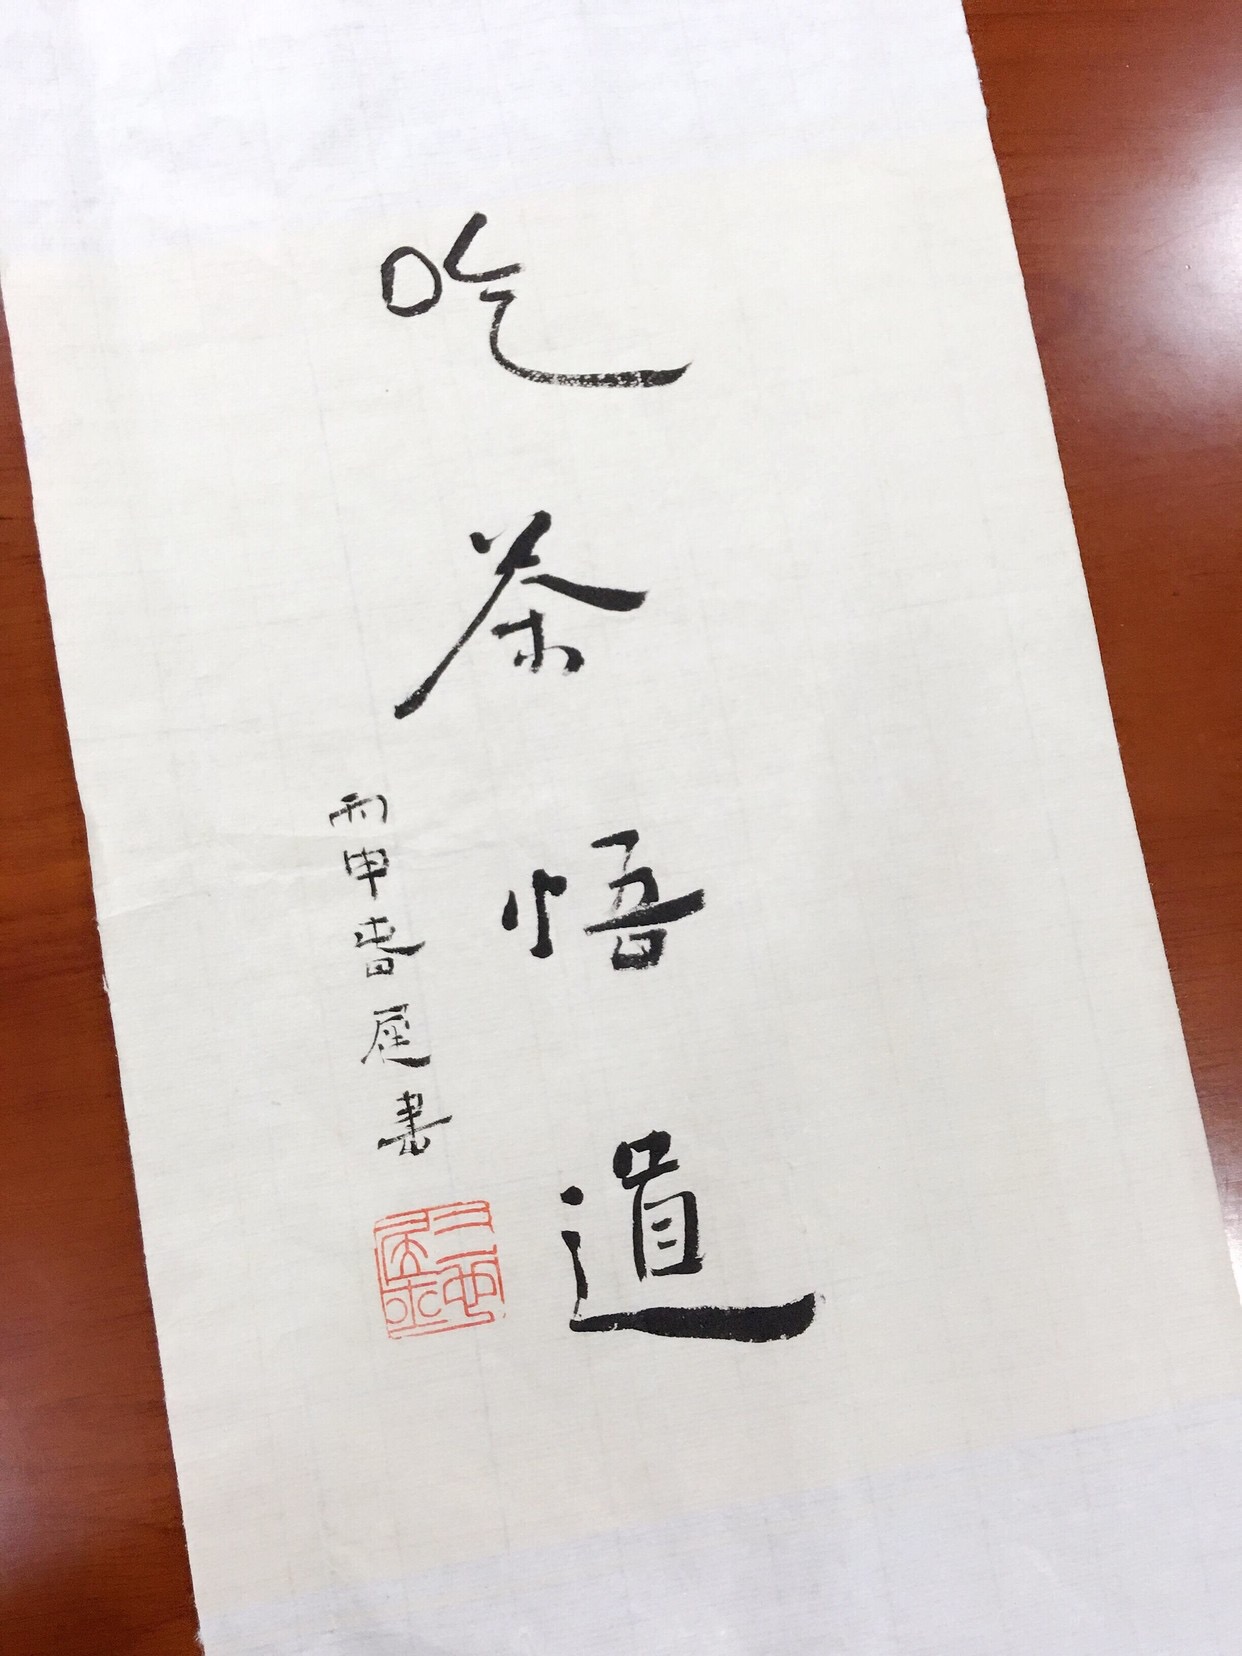 吃茶悟道
丙申春屋書